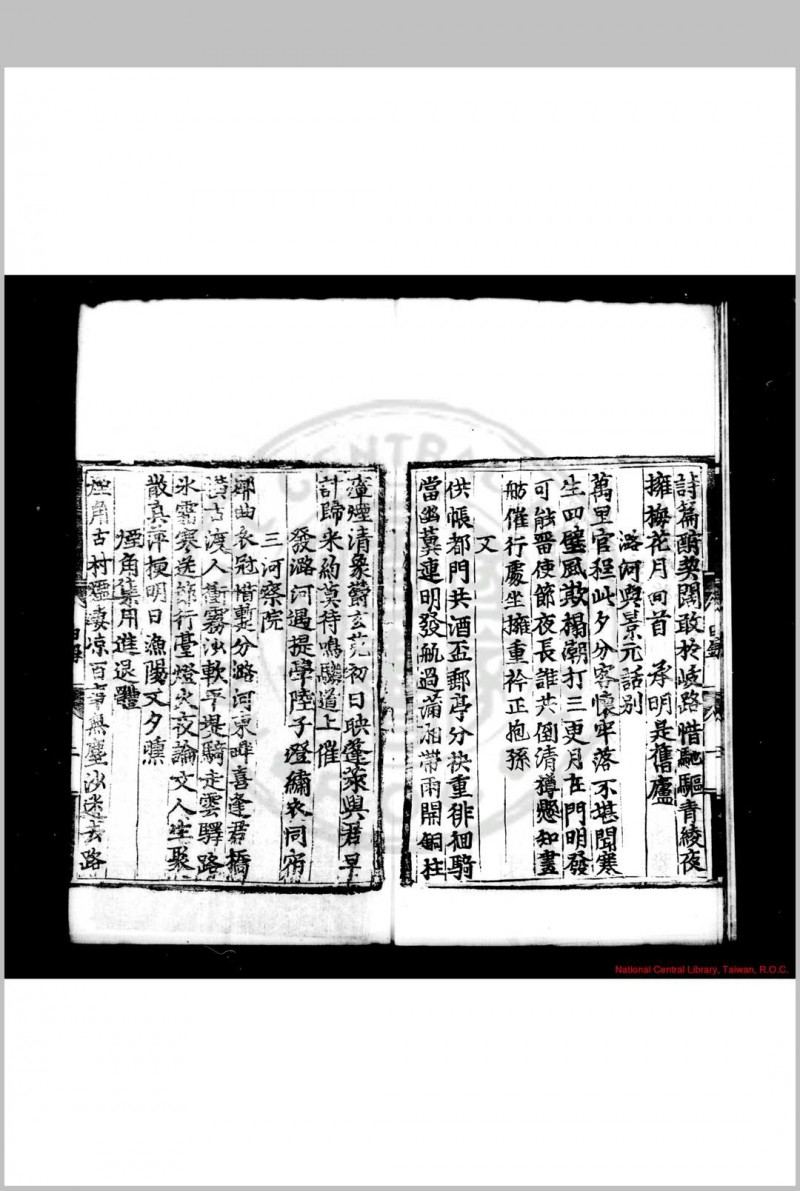 詩篇酬契闊敢於岐路惜馳驅青綾夜
擁梅花月回首 承明是舊廬
潞河與景元話別
萬里官程此夕分客懷牢落不堪聞寒
生四壁風欺榻潮打三更月在門明發
可能器使節夜長誰共倒清樽懸知畫
舫催行處坐擁重衿正抱孫
又
供帳都門共酒盃郵亭分袂重徘徊騎
當幽冀連明發航過瀟湘帶雨開銅柱
瘴煙清象鬱玄花初日映蓬萊與君早
計歸來約莫待鳴騶道上催
發潞河遇提學陸子澄繡衣同宿
三河察院
鄉曲衣冠惜暫分潞河東畔喜逢君橋
橫古渡人衝霧沙軟平堤騎走雲驛路
氷霜寒送節行臺燈火夜論文人生聚
散真萍梗明日漁陽又夕曛
煙角集用進退體
煙角古村墟凄凉百事無塵沙迷去路
National Central Library, Taiwan, R.O.C.